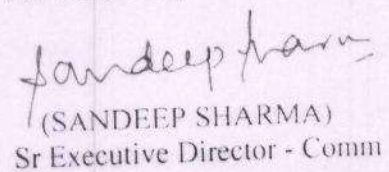 Sandeep Sharma
(SANDEEP SHARMA)
Sr Executive Director - Comm